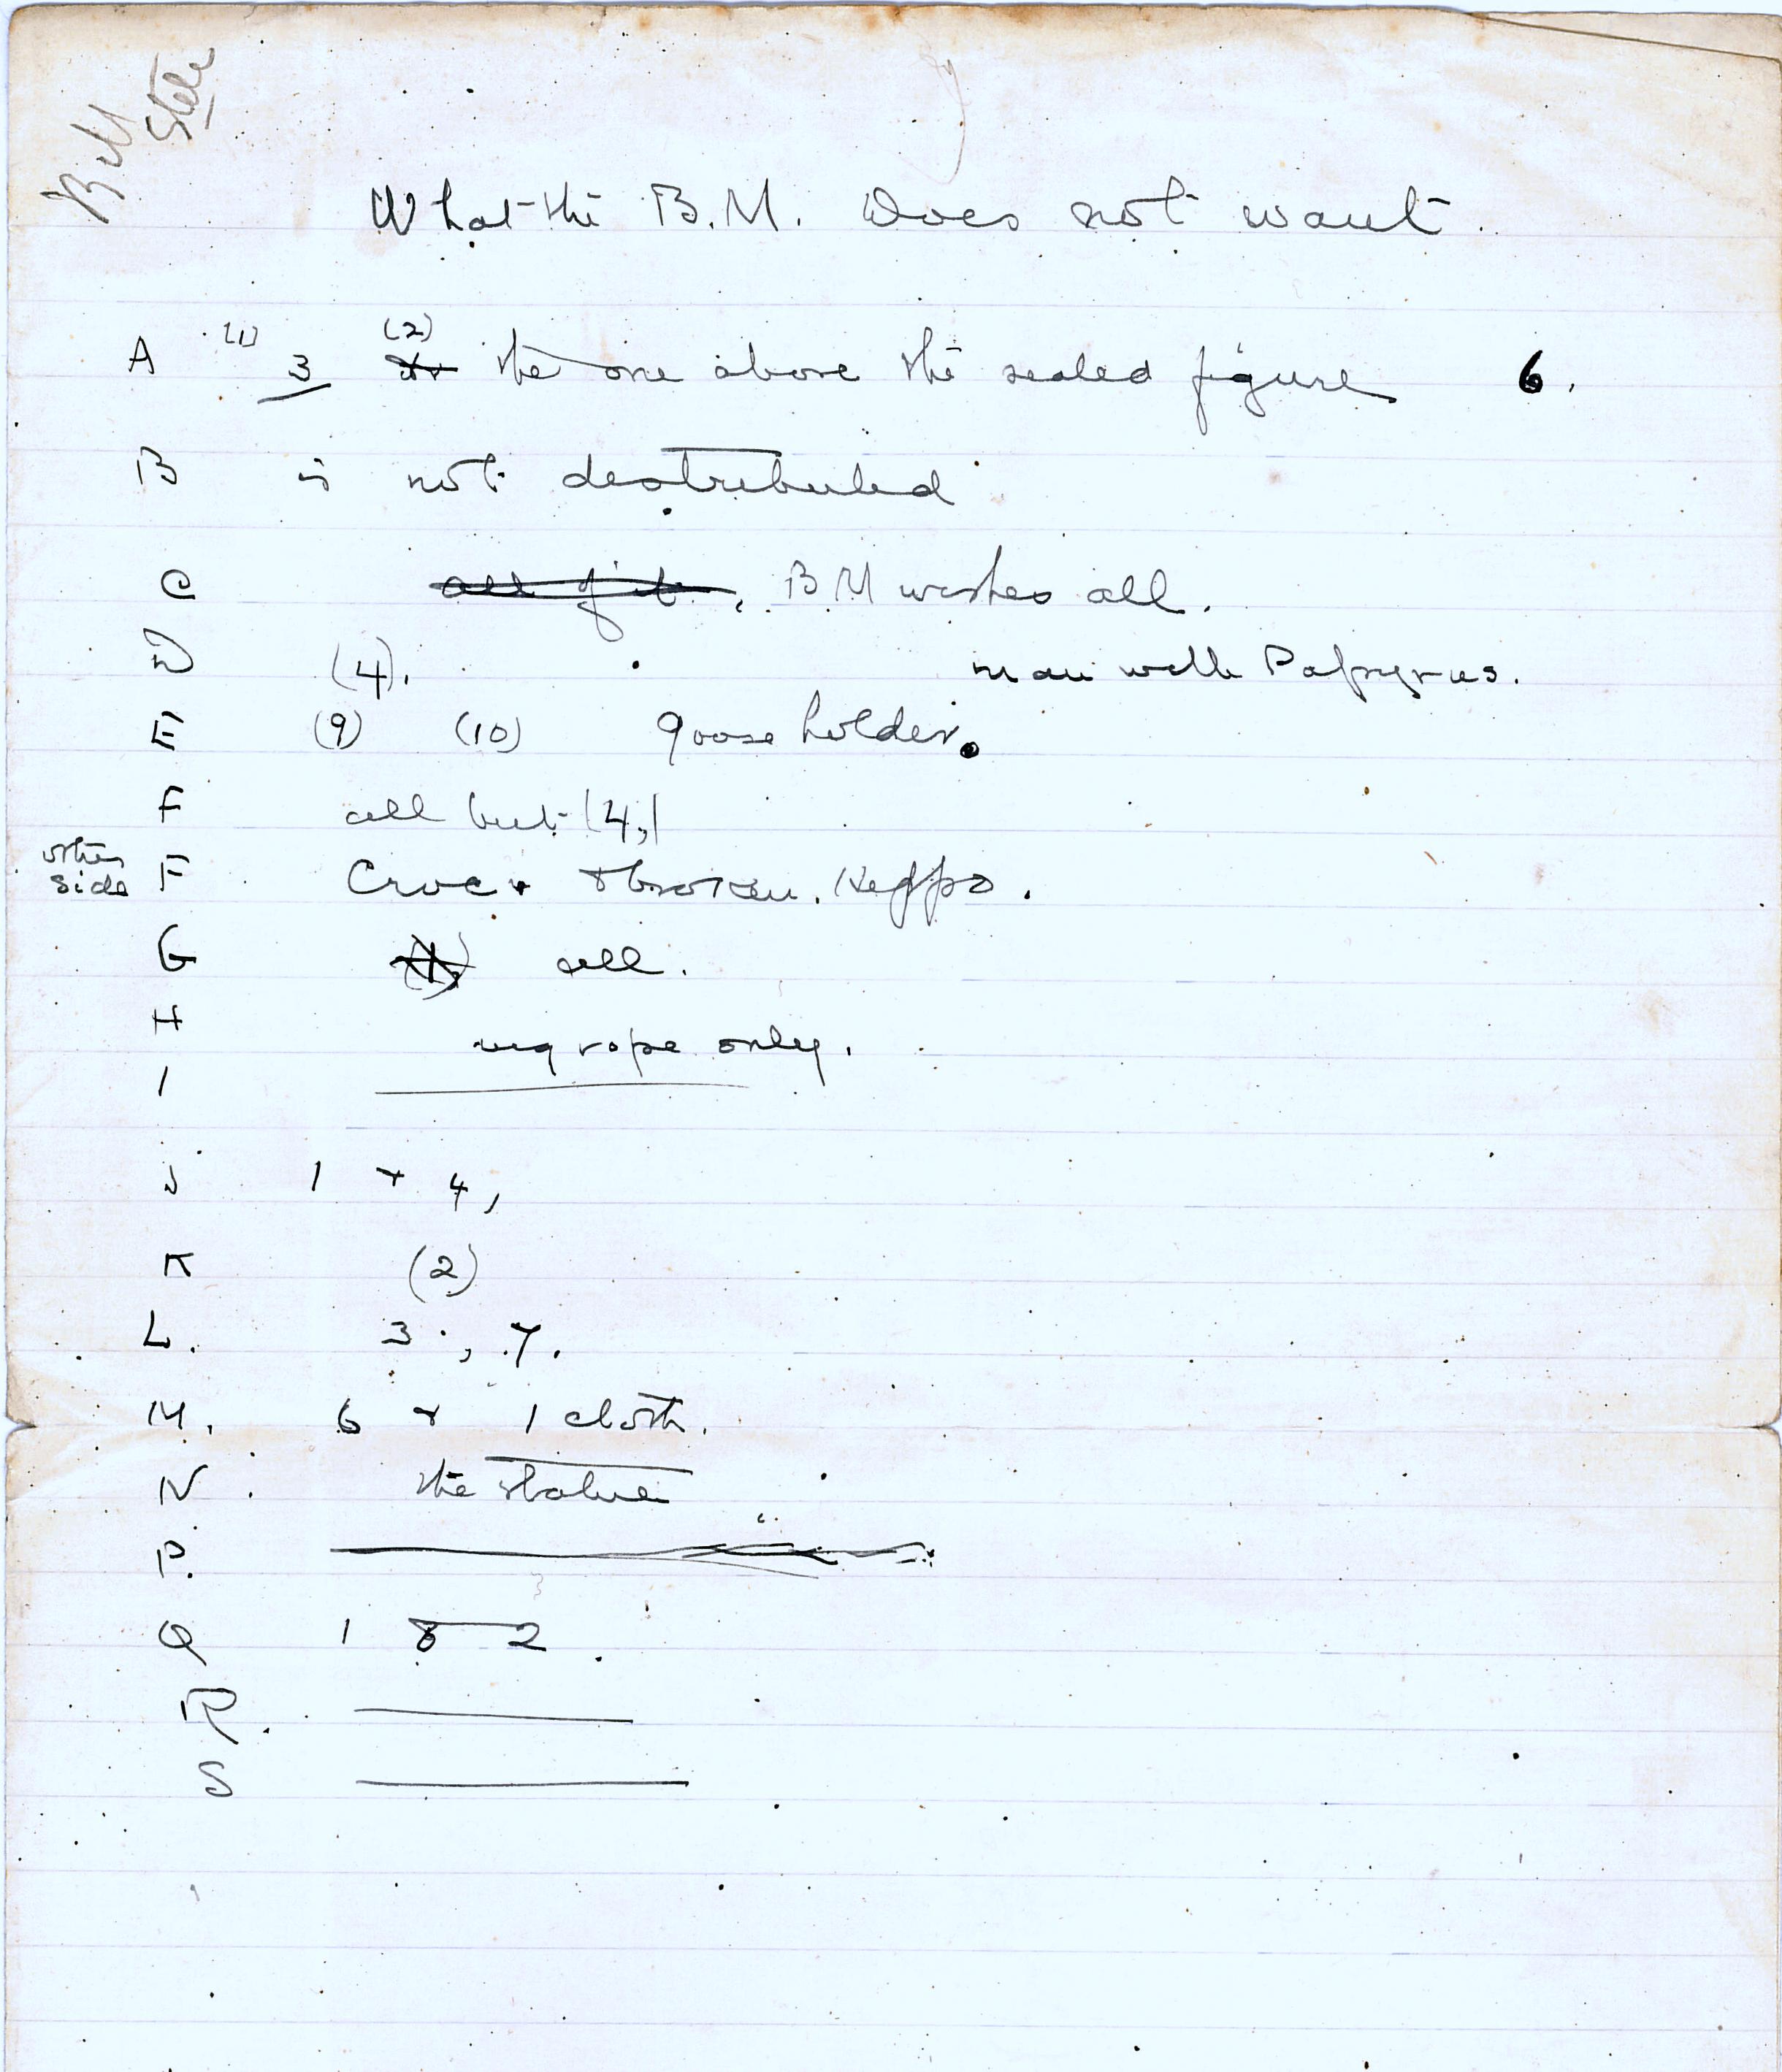 BM
Stele
What the B.M. Does not want.
A (1) 3 (2) the one above the seated figure 6.
B is not destributed
C all of it, BM wishes all.
D (4). man with Papyrus.
E (9) (10) goose holder.
F all but (4,)
other side F Croc + broken.
G all.
H
rope only.
I
J 1 + 4,
K (2)
L. 3, 7.
M. 6 + 1 cloth.
N. the statue
P.
Q 1 & 2.
R.
S